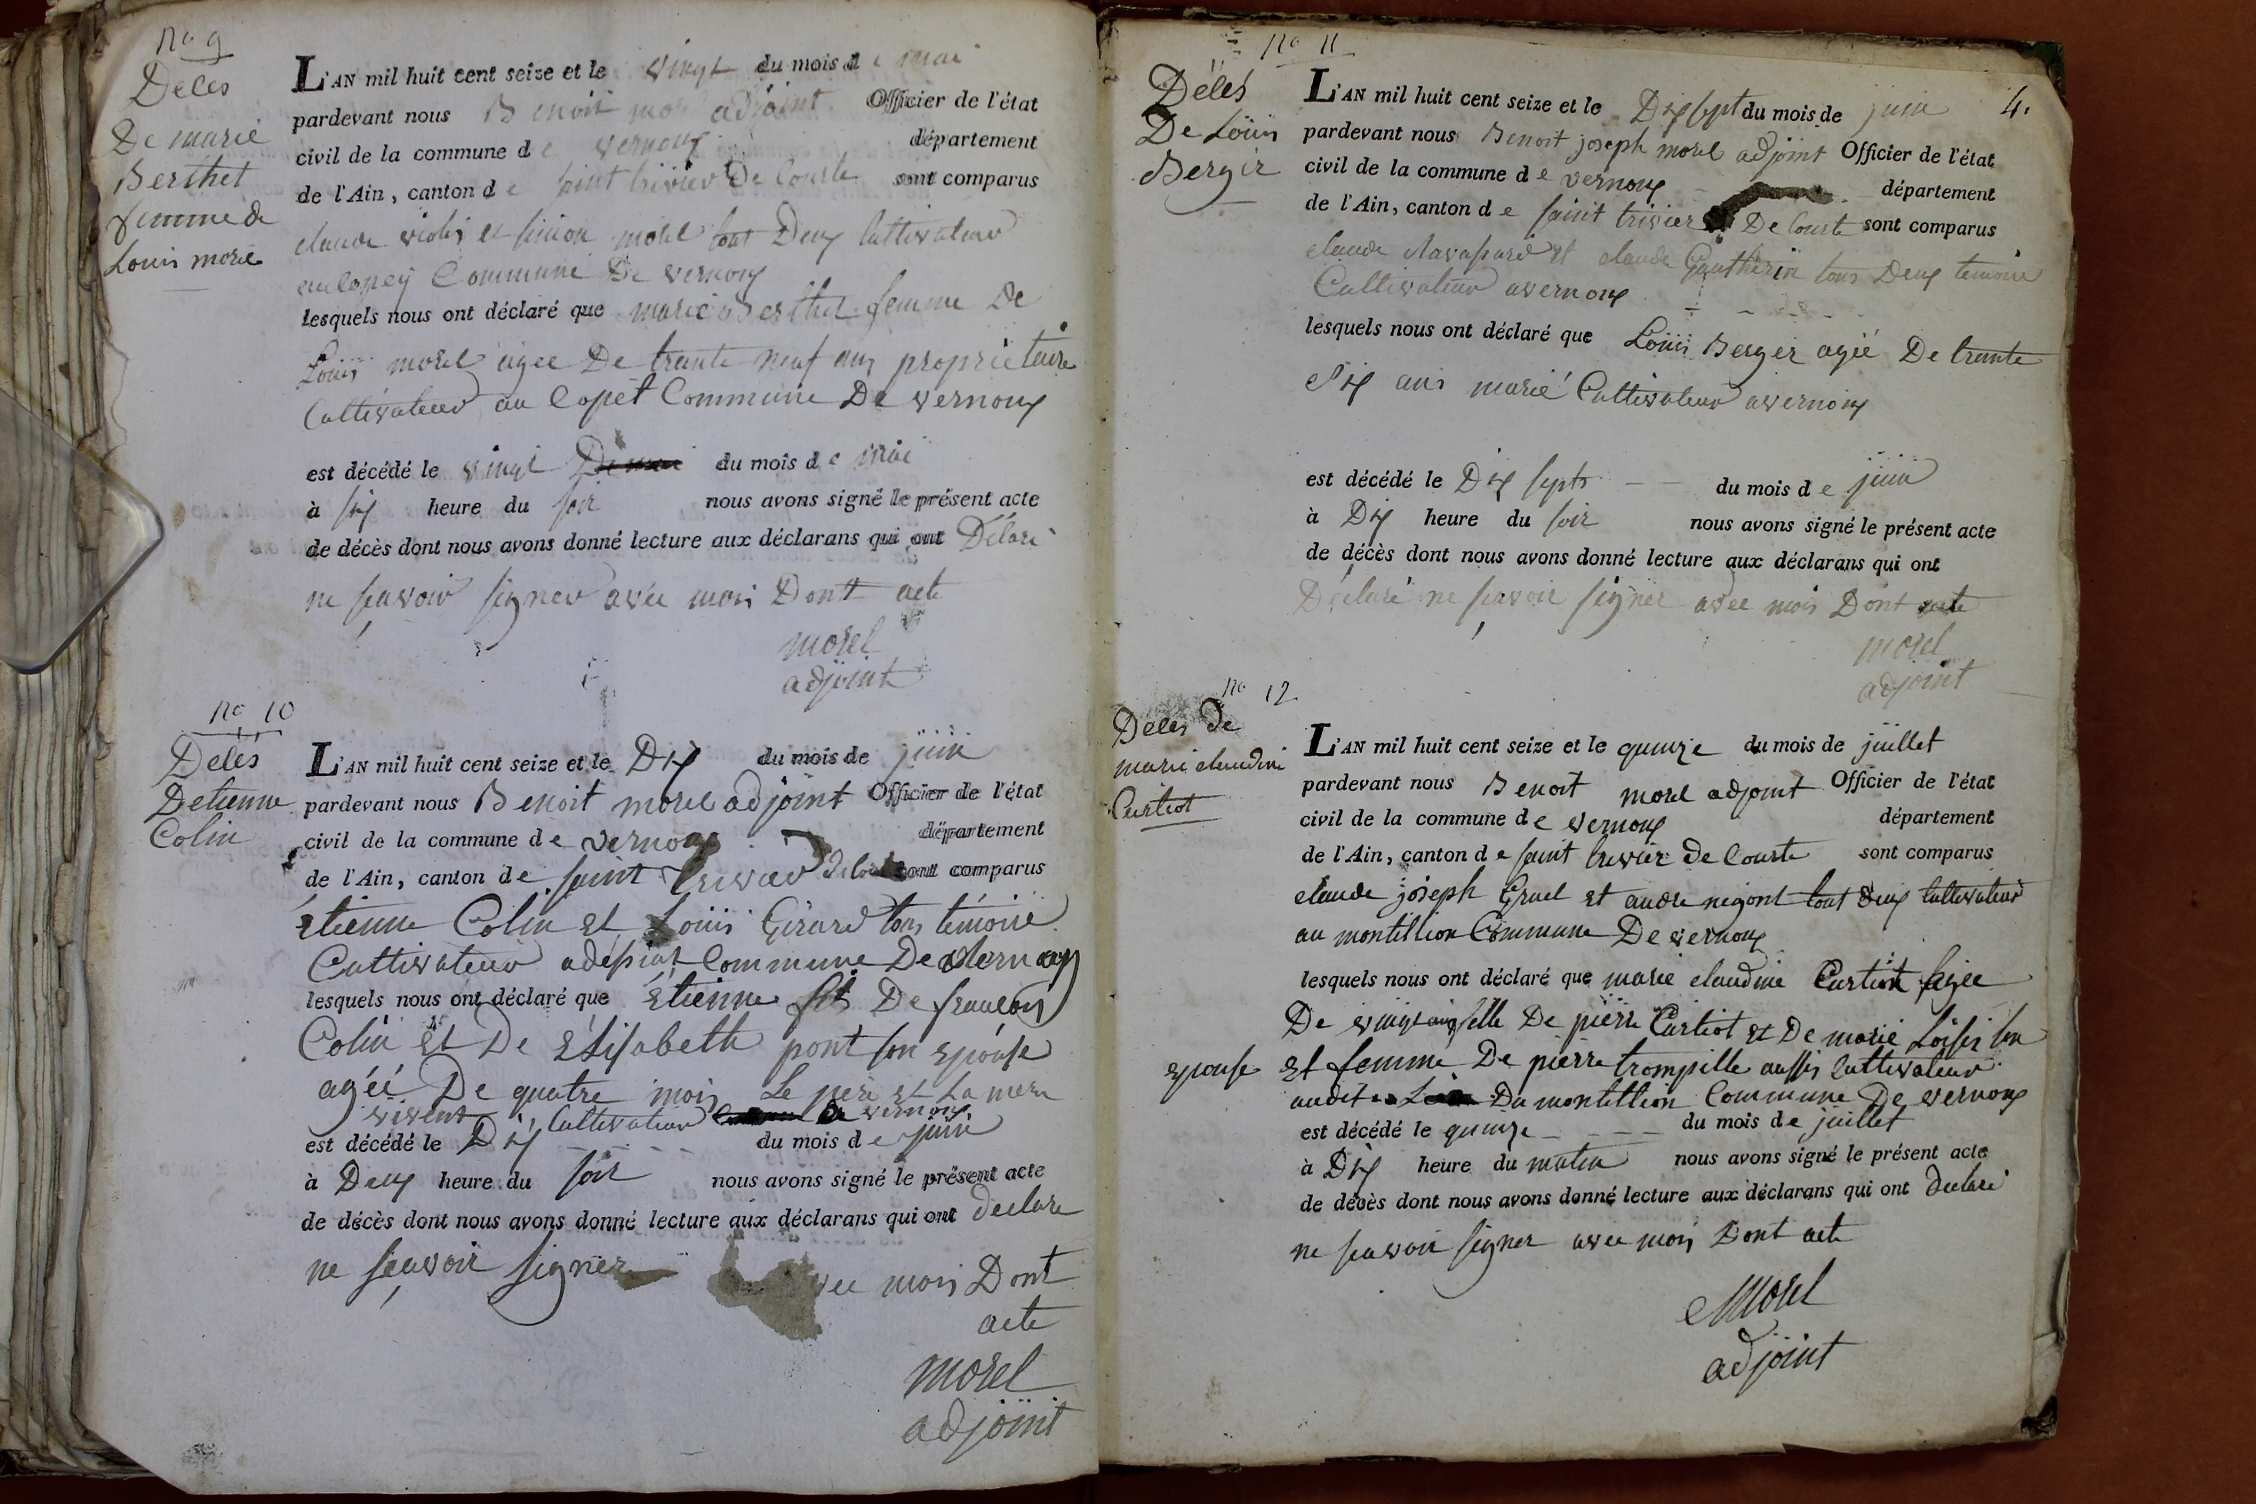 no 9
Déces
De marie
Berthet
femme de
Louis morel
L'AN mil huit cent seize et le vingt du mois de mai
pardevant nous Benoit morel adjoint Officier de l'état
civil de la commune de vernoux département
de l'Ain, canton de saint trivier De Courte sont comparus
claude violy et simon morel tout Deux Cultivateur
au Commune De vernoux
lesquels nous ont déclaré que marie Berthet femme De
Louis morel agee De trante neuf ans proprietaire
Cultivateur au Copet Commune De vernoux
est décédé le vingt du mois de mai
à six heure du soir nous avons signé le présent acte
de décès dont nous avons donné lecture aux déclarans qui ont Déclaré
ne sçavoir signer avec mois Dont acte
morel
adjoint
no 10
Décés
Detienne
Colin
L'AN mil huit cent seize et le Dix du mois de juin
pardevant nous Benoit morel adjoint Officier de l'état
civil de la commune de vernoux département
de l'Ain, canton de saint trivier sont comparus
Etienne Colin et Louis Girard tous témoins
Cultivateur Commune De vernoux
lesquels nous ont déclaré que Etienne fils De francois
Colin et De Elisabeth pont son Epouse
agéé De quatre mois Le pere et La mere
vivent Cultivateur De vernoux
est décédé le Dix du mois de juin
à Deux heure du soir nous avons signé le présent acte
de décès dont nous avons donné lecture aux déclarans qui ont declare
ne sçavoir signer avec mois Dont
acte
morel
adjoint
no 11
4.
Décés
De Louis
Berger
L'AN mil huit cent seize et le Dix sept du mois de juin
pardevant nous Benoit joseph morel adjoint Officier de l'état
civil de la commune de vernoux département
de l'Ain, canton de saint trivier De Courte sont comparus
claude et claude Gautherin tous Deux temoins
Cultivateur a vernoux
lesquels nous ont déclaré que Louis Berger agéé De trante
Six ans marié Cultivateur a vernoux
est décédé le Dix sept du mois de juin
à Dix heure du soir nous avons signé le présent acte
de décès dont nous avons donné lecture aux déclarans qui ont
Déclaré ne sçavoir signer avec mois Dont acte
morel
adjoint
no 12
Deces de
marie claudine
Curtiot
L'AN mil huit cent seize et le quinze du mois de juillet
pardevant nous Benoit morel adjoint Officier de l'état
civil de la commune de vernoux département
de l'Ain, canton de saint trivier De Courte sont comparus
claude joseph Gruel et andre nigont tout deux Cultivateur
au montillion Commune De vernoux
lesquels nous ont déclaré que marie claudine Curtiot agee
De vingt fille De pierre Curtiot et De marie Loisy son
epouse et femme De pierre trompille aussi Cultivateur
audit Du montillion Commune De vernoux
est décédé le quinze du mois de juillet
à Dix heure du matin nous avons signé le présent acte
de décès dont nous avons donné lecture aux déclarans qui ont declaré
ne sçavoir signer avec mois Dont acte
Morel
adjoint